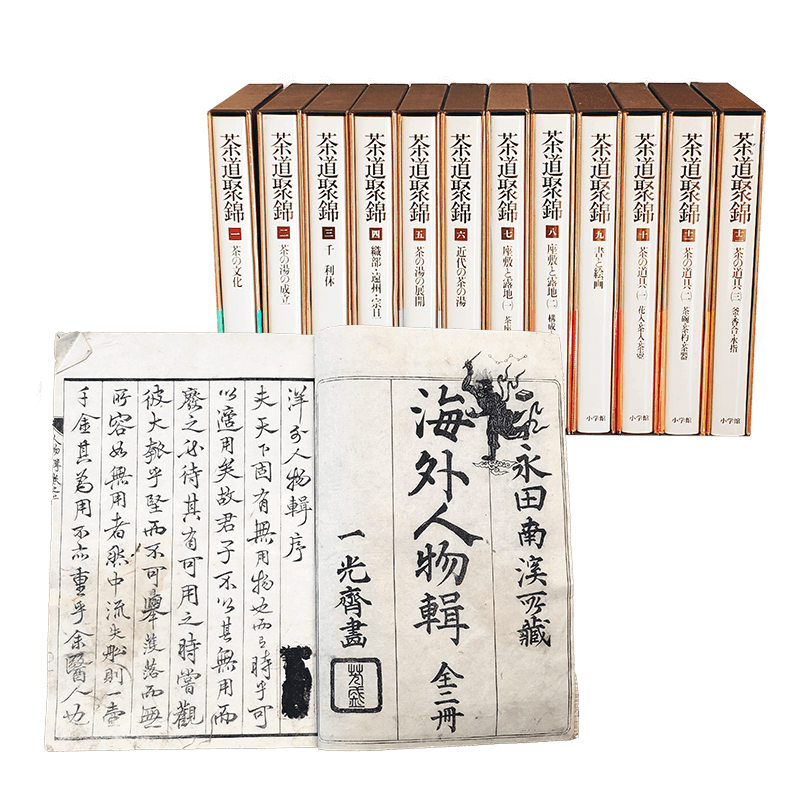 茶道聚錦 一 茶の文化
茶道聚錦 二 茶の湯の成立
茶道聚錦 三 千 利休
茶道聚錦 四 織部・遠州・宗旦
茶道聚錦 五 茶の湯の展開
茶道聚錦 六 近代の茶の湯
茶道聚錦 七 座敷と露地(一) 茶座
茶道聚錦 八 座敷と露地(二) 構成
茶道聚錦 九 書と絵画 小学館
茶道聚錦 十 茶の道具(一) 花入・茶入・茶壺 小学館
茶道聚錦 十一 茶の道具(二) 茶碗・茶杓・茶器 小学館
茶道聚錦 十二 茶の道具(三) 釜・香合・水指 小学館
永田南溪所藏
海外人物輯 全二冊
一光齊畫
洋外人物輯序
夫天下固有無用物也而与時乎可
以適用矣故君子不以其無用而
廢之必待其有可用之時嘗觀
彼大瓠乎堅而不可舉濩落而無
所容如無用者然中流失船則一壺
千金其為用不亦重乎余醫人也